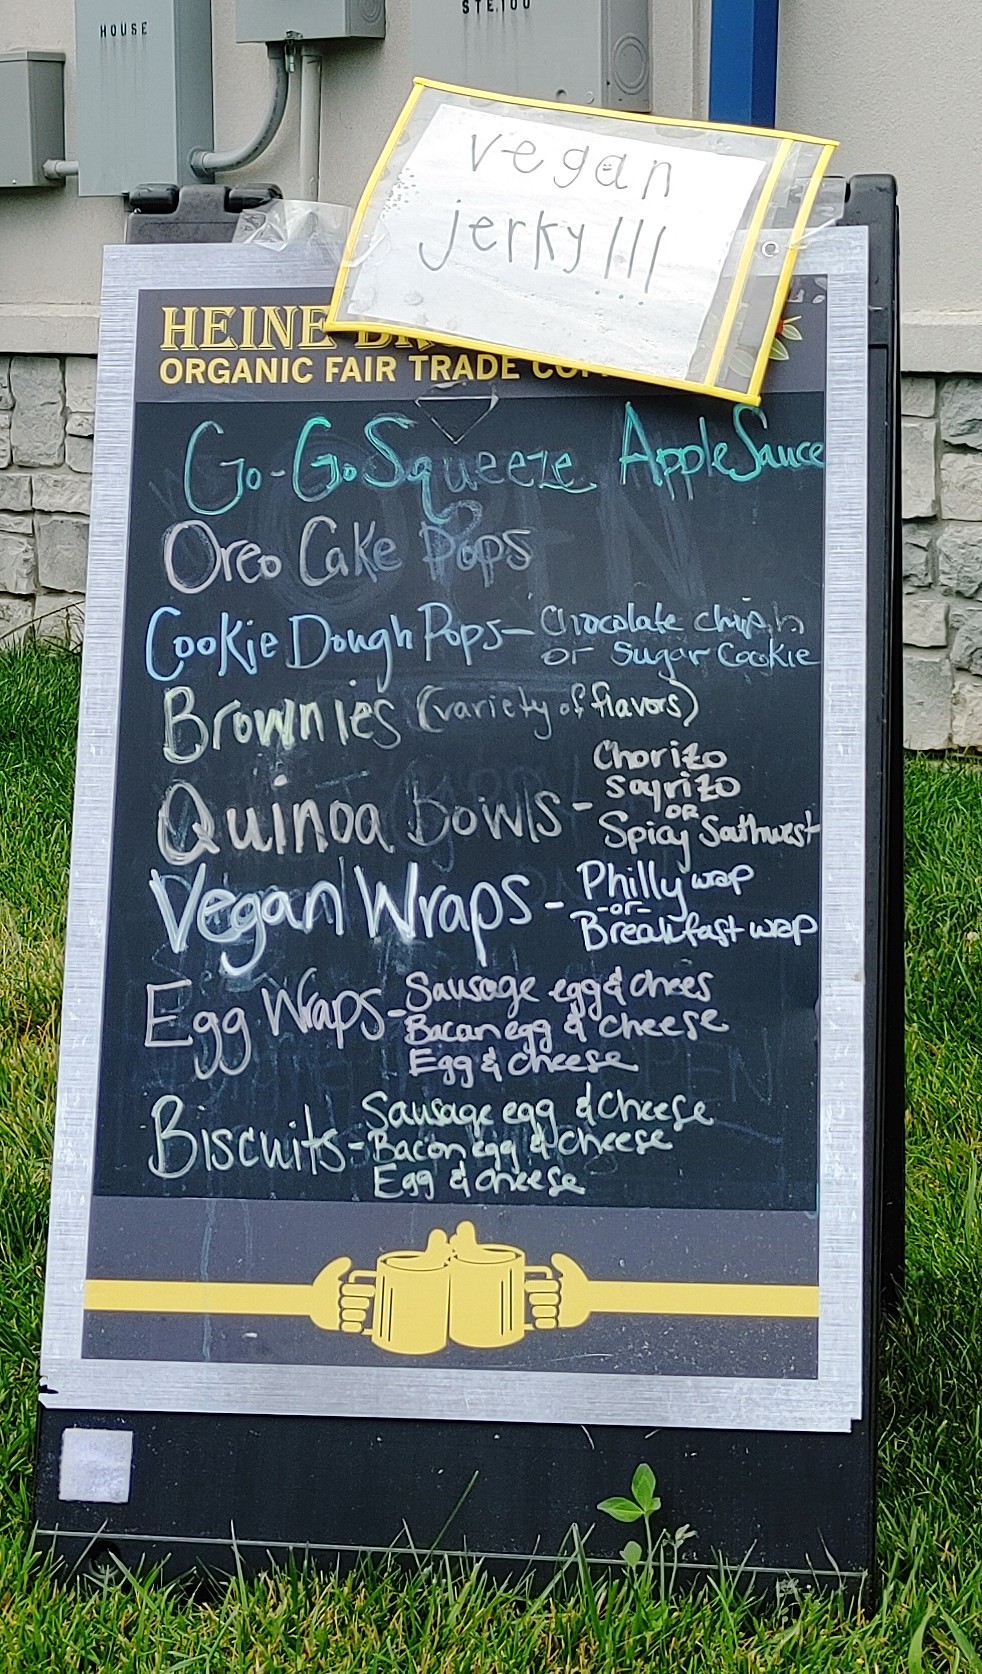 HOUSE
STE.100
vegan
jerky!!!
HEINE
ORGANIC FAIR TRADE
Go-Go Squeeze Apple Sauce
Oreo Cake Pops
Cookie Dough Pops- Chocolate chip
or Sugar Cookie
Brownies (variety of flavors)
Quinoa Bowls- Chorizo
Soyrizo
OR
Spicy Southwest
Vegan Wraps- Philly wrap
-or-
Breakfast wrap
Egg Wraps- Sausage egg & chees
Bacan egg & cheese
Egg & cheese
Biscuits- Sausage egg & cheese
Bacon egg & cheese
Egg & cheese